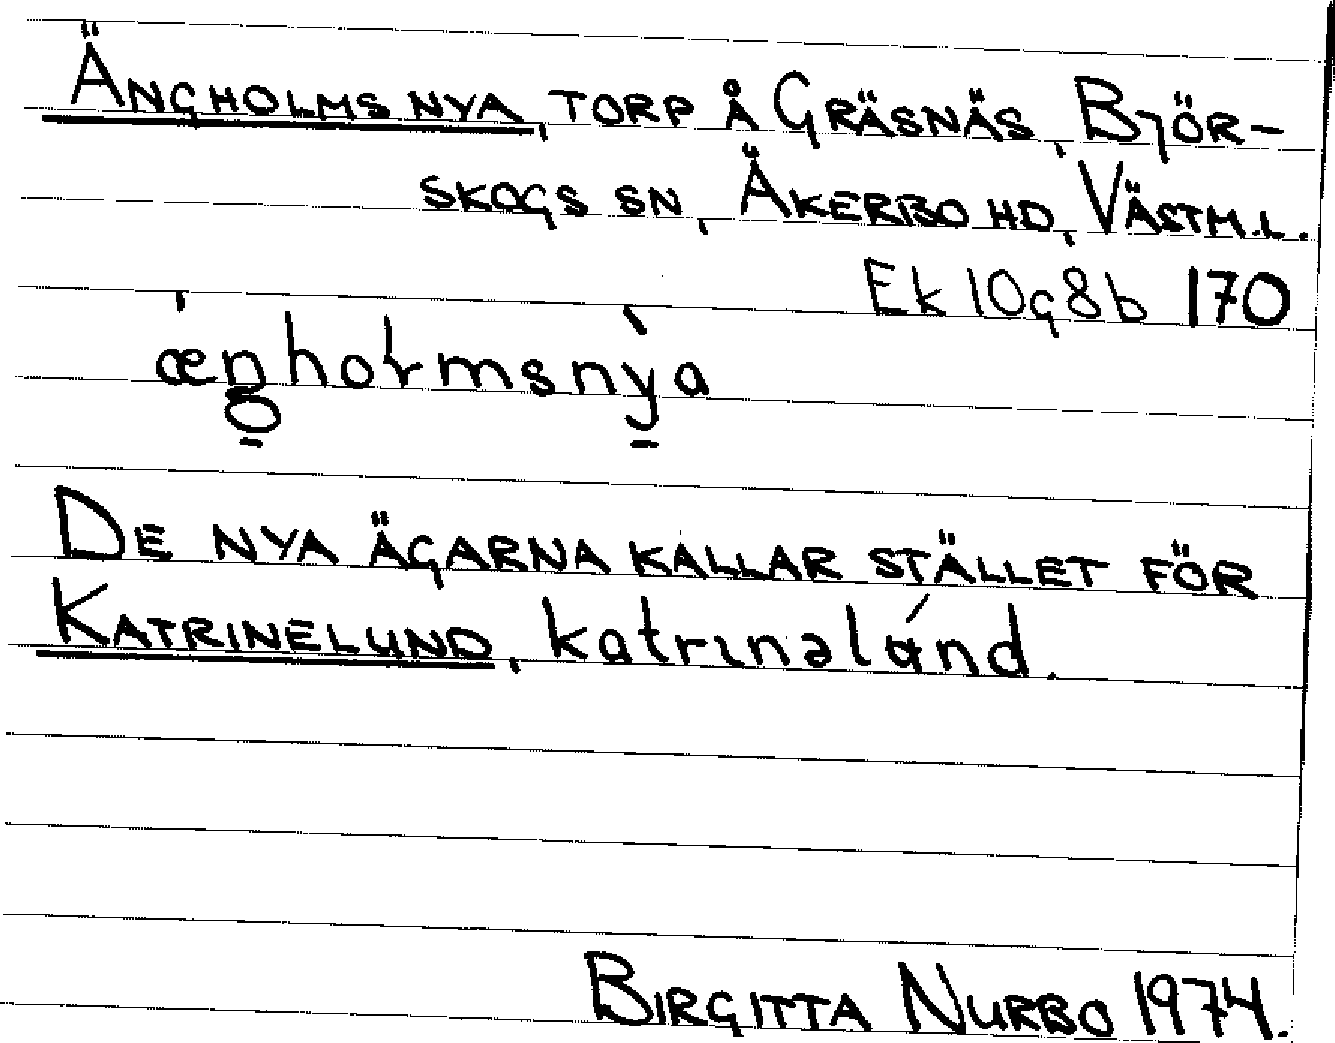 Ängholms nya, torp å Gräsnäs, Björ-
skogs sn, Åkerbo hd, Västm.l.
Ek 10g8b 170
æŋholmsnya
De nya ägarna kallar stället för
Katrinelund, katrinəlánd.
Birgitta Nurbo 1974.